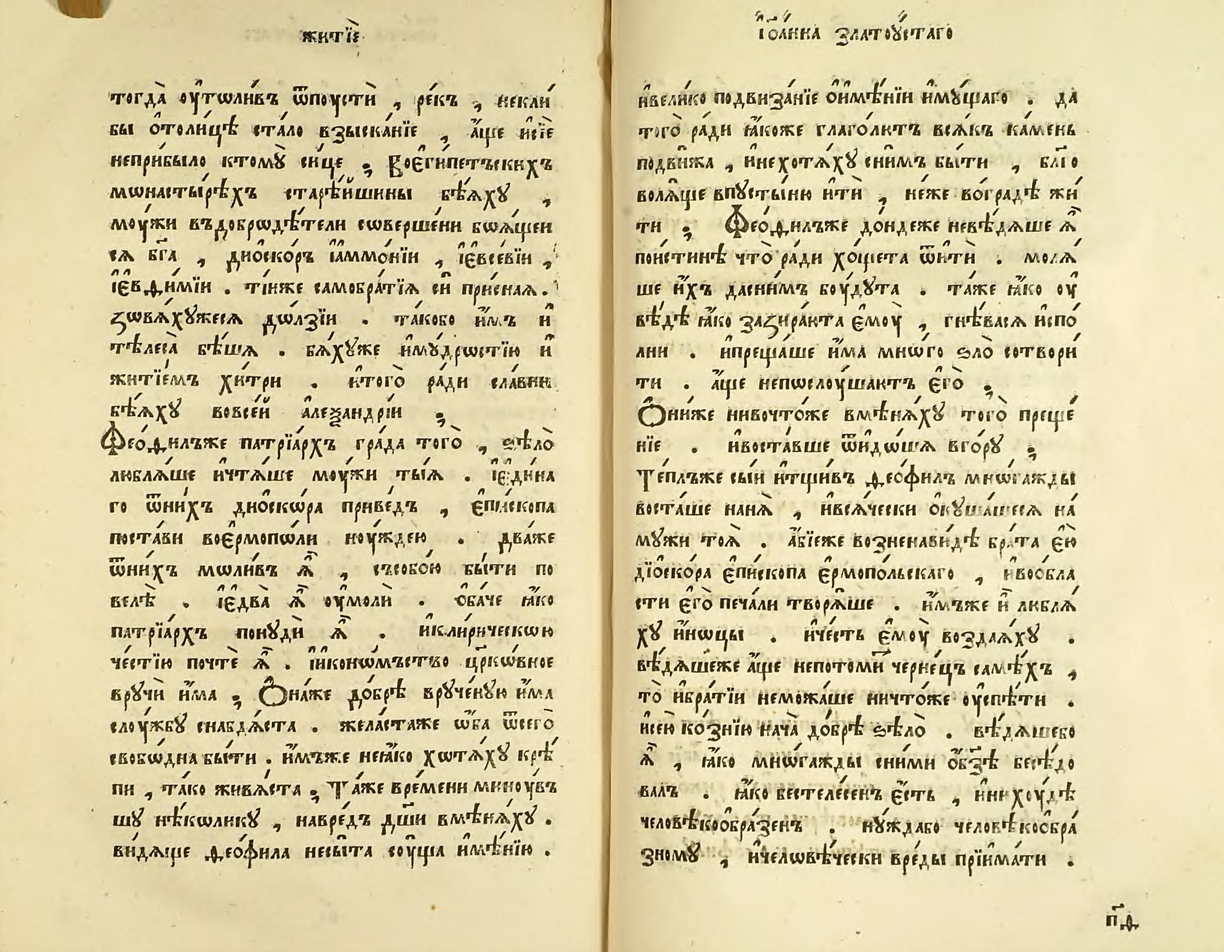 житїѐ
тогда̀ ѹ҆тѡливъ ѿпоустѝ , ре́къ , некли
бы ѿтолицѣ ста́ло взыска́нїе , а҆́ще и҆сїе
неприбыло ктомꙋ̀ си́це . Воєги́петъскихъ
мѡнастырѣхъ старѣ́йшины бѣ́ѧхꙋ ,
моу́жи въдобродѣ́тели сѡверше́ни боѧ́щеи
сѧ бг҃а , дио́скоръ і҆аммо́нїи , і҆евсе́вїи ,
і҆евѳи́мїи . ті́иже самобра́тїѧ си̑ при́снаѧ .
ꙁовѧ́хꙋжесѧ до́лзїи . та́кобо и҆̀мъ и҆
тѣлеса̀ бѣ́шѧ . бѧ́хꙋже и҆мꙋ́дростїю и҆
житїе́мъ хи́три . и҆того̀ ра́ди сла́вни
бѣ́ѧхꙋ вовсе́й алеѯандрі́и .
Ѳео́филъже патрїа́рхъ гра́да того̀ , ѕѣло̀
любѧ́ше и҆чтѧ́ше моу́жи ты́ѧ . і҆еди́на
го ѿни́хъ дио́скѡра приве́дъ , є҆пи́скопа
поста́ви воє҆рмопо́ли ноу́ждею . два́же
ѿни́хъ мѡли́въ ѧ҆̀ , съсобо́ю бы́ти по
велѣ̀ . і҆едва̀ ѧ҆̀ ѹ҆молѝ . ѻ҆ба́че ꙗ҆́ко
патрїа́рхъ понꙋди ѧ҆̀ . и҆клири́ческѡю
че́стїю почтѐ ѧ҆̀ . и҆и҆коно́мъство цр҃ко́вное
врꙋчѝ и҆́ма . Ѻ҆на́же до́брѣ врꙋче́нꙋю и҆́ма
слоу́жбꙋ снабдѧ́ста . жела́стаже ѡ҆́ба ѿсего̀
свобо́дна бы́ти . и҆̀мъже неꙗ҆́ко хотѧ́хꙋ крѣ́
пи , та́ко живѧ́ста . Та́же вре́мени миноу́въ
шꙋ нѣ́колику , навре́дъ дш҃и вмѣнѧ́хꙋ .
ви́дѧще ѳео́фила несы́та соу́ща и҆мѣ́нїю .
і҆ѡа́нна златоу́стаго
и҆вели́ко подвиза́нїе ѻ҆и҆мѣ́нїи и҆мꙋ́щаго . да
того̀ ра́ди ꙗ҆́коже глаго́литъ всѧ́къ ка́мень
подви́жа , и҆нехотѧ́хꙋ сни́мъ бы́ти , бл҃го
волѧ́ще впꙋсты́ню и҆тѝ , не́же вогра́дѣ жи́
ти . Ѳео́филъже до́ндеже невѣ́дѧше ѧ҆̀
пои́стинѣ что̀ ра́ди хо́щета ѿитѝ . молѧ́
ше и҆́хъ дасни́мъ боу́дута . та́же ꙗ҆́ко ѹ҆
вѣ́дѣ ꙗ҆́ко зазира́юта є҆моу̀ , гнѣ́васѧ и҆спо́
лни . и҆преща́ше и҆́ма мно́го ѕло̀ сотвори́
ти . а҆́ще непослоу́шаютъ є҆го̀ .
Ѻ҆ни́же нивочто́же вмѣнѧ́хꙋ того̀ преще́
нїе . и҆воста́вше ѿидо́шѧ вго́рꙋ .
Те́плъже сы́и и҆тщи́въ ѳео́филъ многа́жды
воста́ше нанѧ̀ , и҆всѧ́чески ѻ҆кꙋша́шесѧ на
мꙋ́жи тоѧ̀ . а҆́бїеже возненави́дѣ бра́та є҆ю̀
дїо́скора є҆пи́скопа є҆рмопо́льскаго , и҆воо́бла
сти є҆го̀ печа́ли творѧ́ше . и҆̀мъже и҆̀ люблѧ́
хꙋ и҆́ноцы . и҆че́сть є҆моу̀ воздаѧ́хꙋ .
вѣ́дѧшеже а҆́ще непото́ми черне́цъ самѣ́хъ ,
то̀ и҆бра́тїи немо́жаше ничто́же ѹ҆спѣ́ти .
и҆се́ю ко́знїю нача̀ до́брѣ ѕѣло̀ . вѣ́дѧшебо
ѧ҆̀ , ꙗ҆́ко многа́жды сни́ми ѻ҆бз҃ѣ бесѣ́до
валъ . ꙗ҆́ко бестеле́сенъ є҆́сть , и҆нихꙋ́дѣ
человѣкоо҆бра́зенъ . нꙋ́ждабо человѣ́коо҆бра́
зномꙋ , и҆человѣ́чески вре́ды прїима́ти .
п҃д